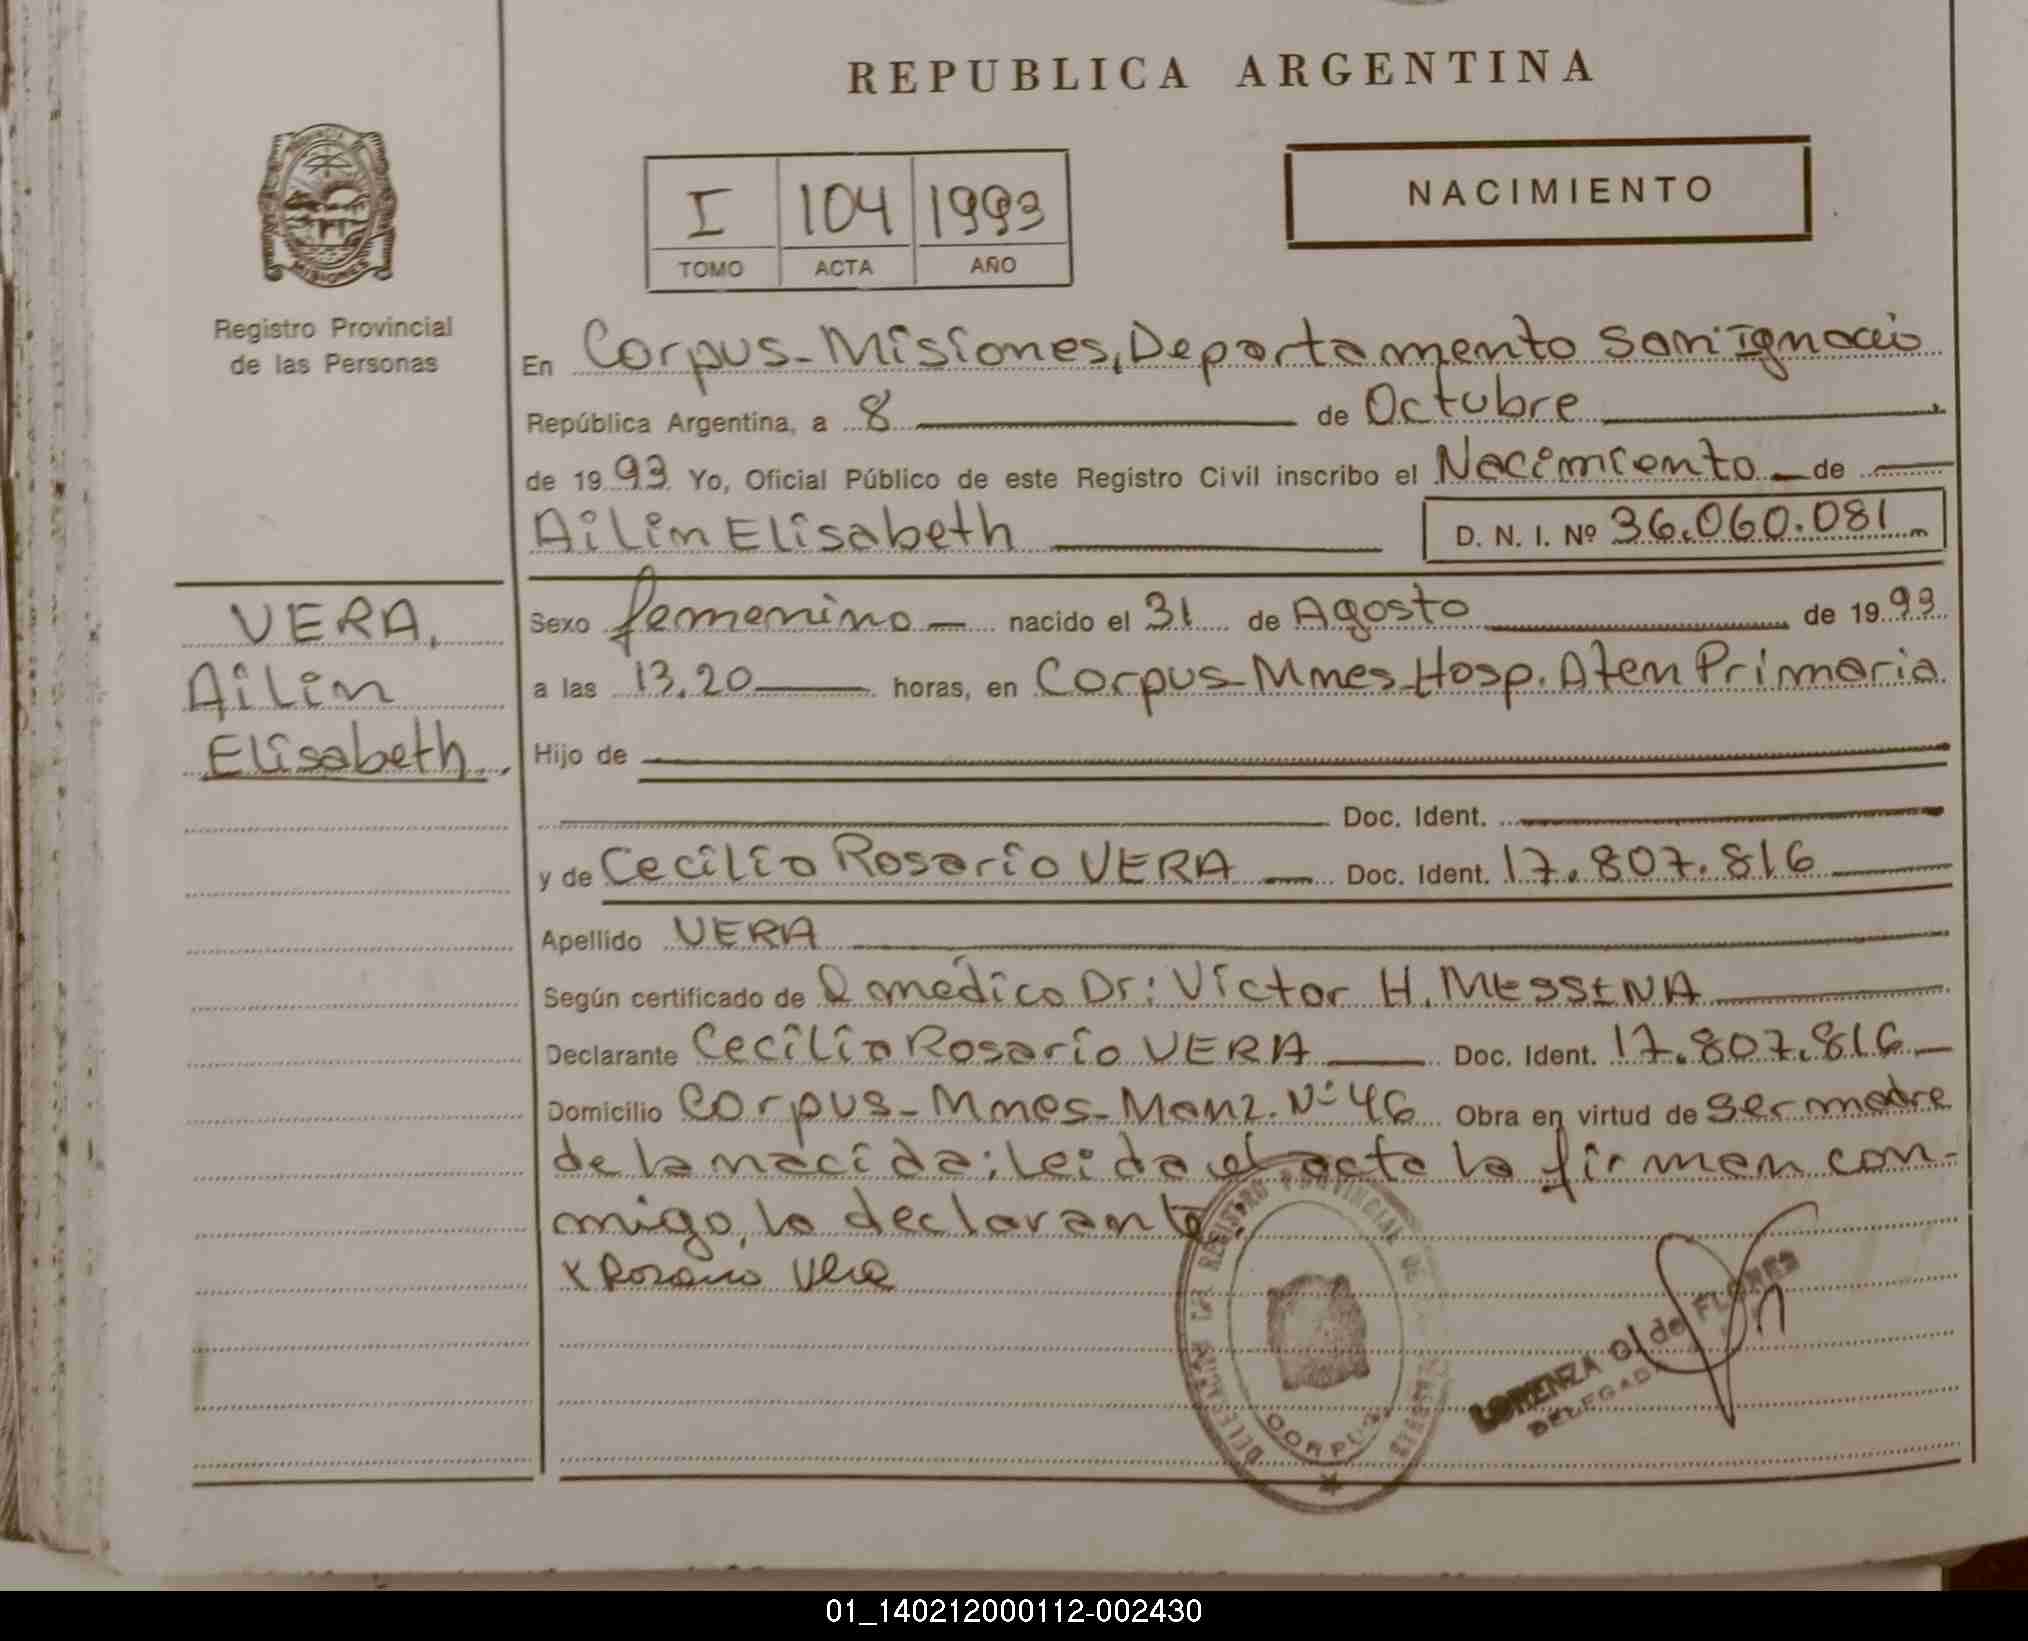 REPUBLICA ARGENTINA
MISIONES
Registro Provincial
de las Personas
I 104 1993
TOMO ACTA AÑO
NACIMIENTO
En Corpus-Misiones, Departamento San Ignacio
República Argentina, a 8 de Octubre
de 1993 Yo, Oficial Público de este Registro Civil inscribo el Nacimiento de
Ailin Elisabeth D. N. I. Nº 36.060.081
VERA,
Ailin
Elisabeth
Sexo femenino nacido el 31 de Agosto de 1993
a las 13.20 horas, en Corpus-Mnes-Hosp. Aten Primaria
Hijo de
Doc. Ident.
y de Cecilia Rosario VERA Doc. Ident. 17.807.816
Apellido VERA
Según certificado de médico Dr: Victor H. MESSINA
Declarante Cecilia Rosario VERA Doc. Ident. 17.807.816
Domicilio Corpus-Mnes-Manz. Nº 46 Obra en virtud de ser madre
de la nacida; leida el acta la firman con-
migo, la declarante.
x Rosario Vera
REGISTRO PROVINCIAL DE
CORPUS
LORENZA O. de FLORES
DELEGADA
01_140212000112-002430